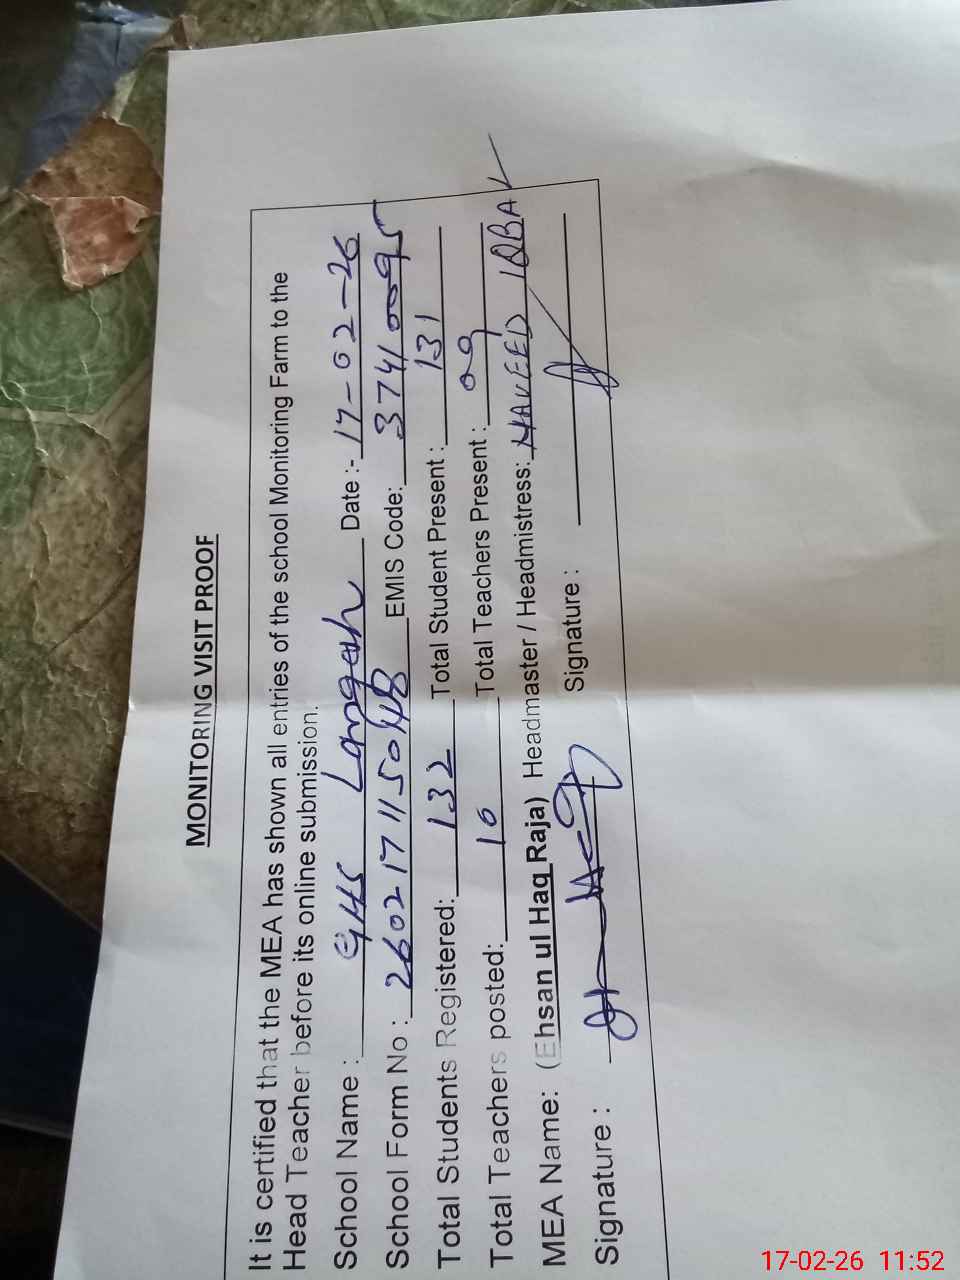 MONITORING VISIT PROOF
It is certified that the MEA has shown all entries of the school Monitoring Farm to the
Head Teacher before its online submission.
School Name : GHS Langah Date :- 17-02-26
School Form No : 26021711 50448 EMIS Code: 37410095
Total Students Registered: 132 Total Student Present : 131
Total Teachers posted: 10 Total Teachers Present : 09
MEA Name: (Ehsan ul Haq Raja) Headmaster / Headmistress: NAVEED IQBAL
Signature : Signature :
17-02-26 11:52